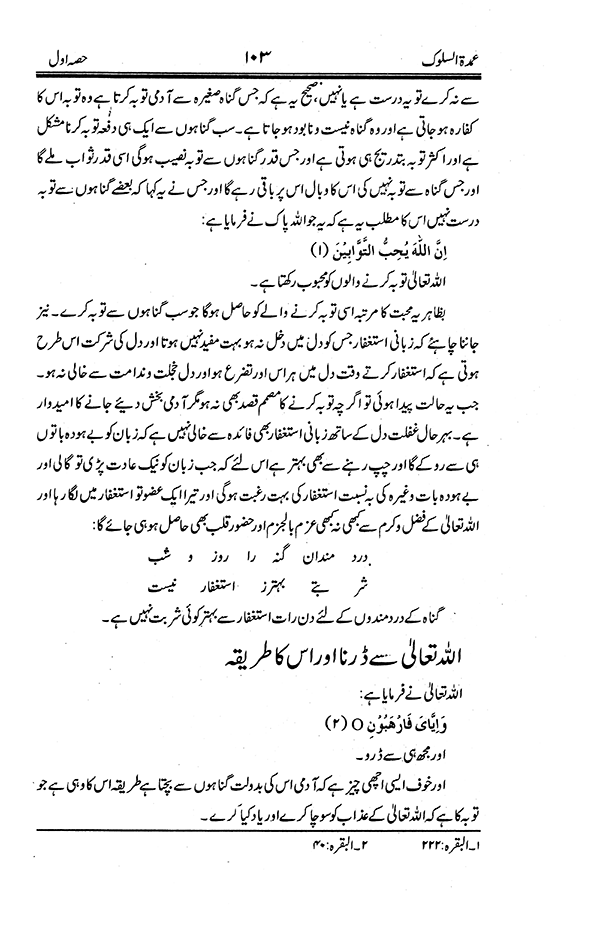 عمدۃ السلوک ۱۰۳ حصہ اول
سے نہ کرے تو یہ درست ہے یا نہیں، صحیح یہ ہے کہ جس گناہ صغیرہ سے آدمی توبہ کرتا ہے وہ توبہ اس کا
کفارہ ہو جاتی ہے اور وہ گناہ نیست و نابود ہو جاتا ہے۔ سب گناہوں سے ایک ہی دفعہ توبہ کرنا مشکل
ہے اور اکثر توبہ بتدریج ہی ہوتی ہے اور جس قدر گناہوں سے توبہ نصیب ہوگی اسی قدر ثواب ملے گا
اور جس گناہ سے توبہ نہیں کی اس کا وبال اس پر باقی رہے گا اور جس نے یہ کہا کہ بعضے گناہوں سے توبہ
درست نہیں اس کا مطلب یہ ہے کہ یہ جو اللہ پاک نے فرمایا ہے:
اِنَّ اللّٰهَ يُحِبُّ التَّوَّابِيْنَ (۱)
اللہ تعالیٰ توبہ کرنے والوں کو محبوب رکھتا ہے۔
بظاہر یہ محبت کا مرتبہ اسی توبہ کرنے والے کو حاصل ہوگا جو سب گناہوں سے توبہ کرے۔ نیز
جاننا چاہئے کہ زبانی استغفار جس کو دل میں دخل نہ ہو بہت مفید نہیں ہوتا اور دل کی شرکت اس طرح
ہوتی ہے کہ استغفار کرتے وقت دل میں ہراس اور تضرع ہو اور دل خجلت و ندامت سے خالی نہ ہو۔
جب یہ حالت پیدا ہوئی تو اگر چہ توبہ کرنے کا مصمم قصد بھی نہ ہو مگر آدمی بخش دیئے جانے کا امیدوار
ہے۔ بہر حال غفلت دل کے ساتھ زبانی استغفار بھی فائدہ سے خالی نہیں ہے کہ زبان کو بے ہودہ باتوں
ہی سے روکے گا اور چپ رہنے سے بھی بہتر ہے اس لئے کہ جب زبان کو نیک عادت پڑی تو گالی اور
بے ہودہ بات وغیرہ کی بہ نسبت استغفار کی بہت رغبت ہوگی اور تیرا ایک عضو تو استغفار میں لگا رہا اور
اللہ تعالیٰ کے فضل و کرم سے کبھی نہ کبھی عزم بالجزم اور حضور قلب بھی حاصل ہو ہی جائے گا:
درد مندان گنہ را روز و شب
شربتے بہتر ز استغفار نیست
گناہ کے درد مندوں کے لئے دن رات استغفار سے بہتر کوئی شربت نہیں ہے۔
اللہ تعالیٰ سے ڈرنا اور اس کا طریقہ
اللہ تعالیٰ نے فرمایا ہے:
وَاِيَّايَ فَارْهَبُوْنِ O (۲)
اور مجھ ہی سے ڈرو۔
اور خوف ایسی اچھی چیز ہے کہ آدمی اس کی بدولت گناہوں سے بچتا ہے طریقہ اس کا وہی ہے جو
توبہ کا ہے کہ اللہ تعالیٰ کے عذاب کو سوچا کرے اور یاد کیا کرے۔
۱۔البقرہ:۲۲۲ ۲۔البقرہ:۴۰